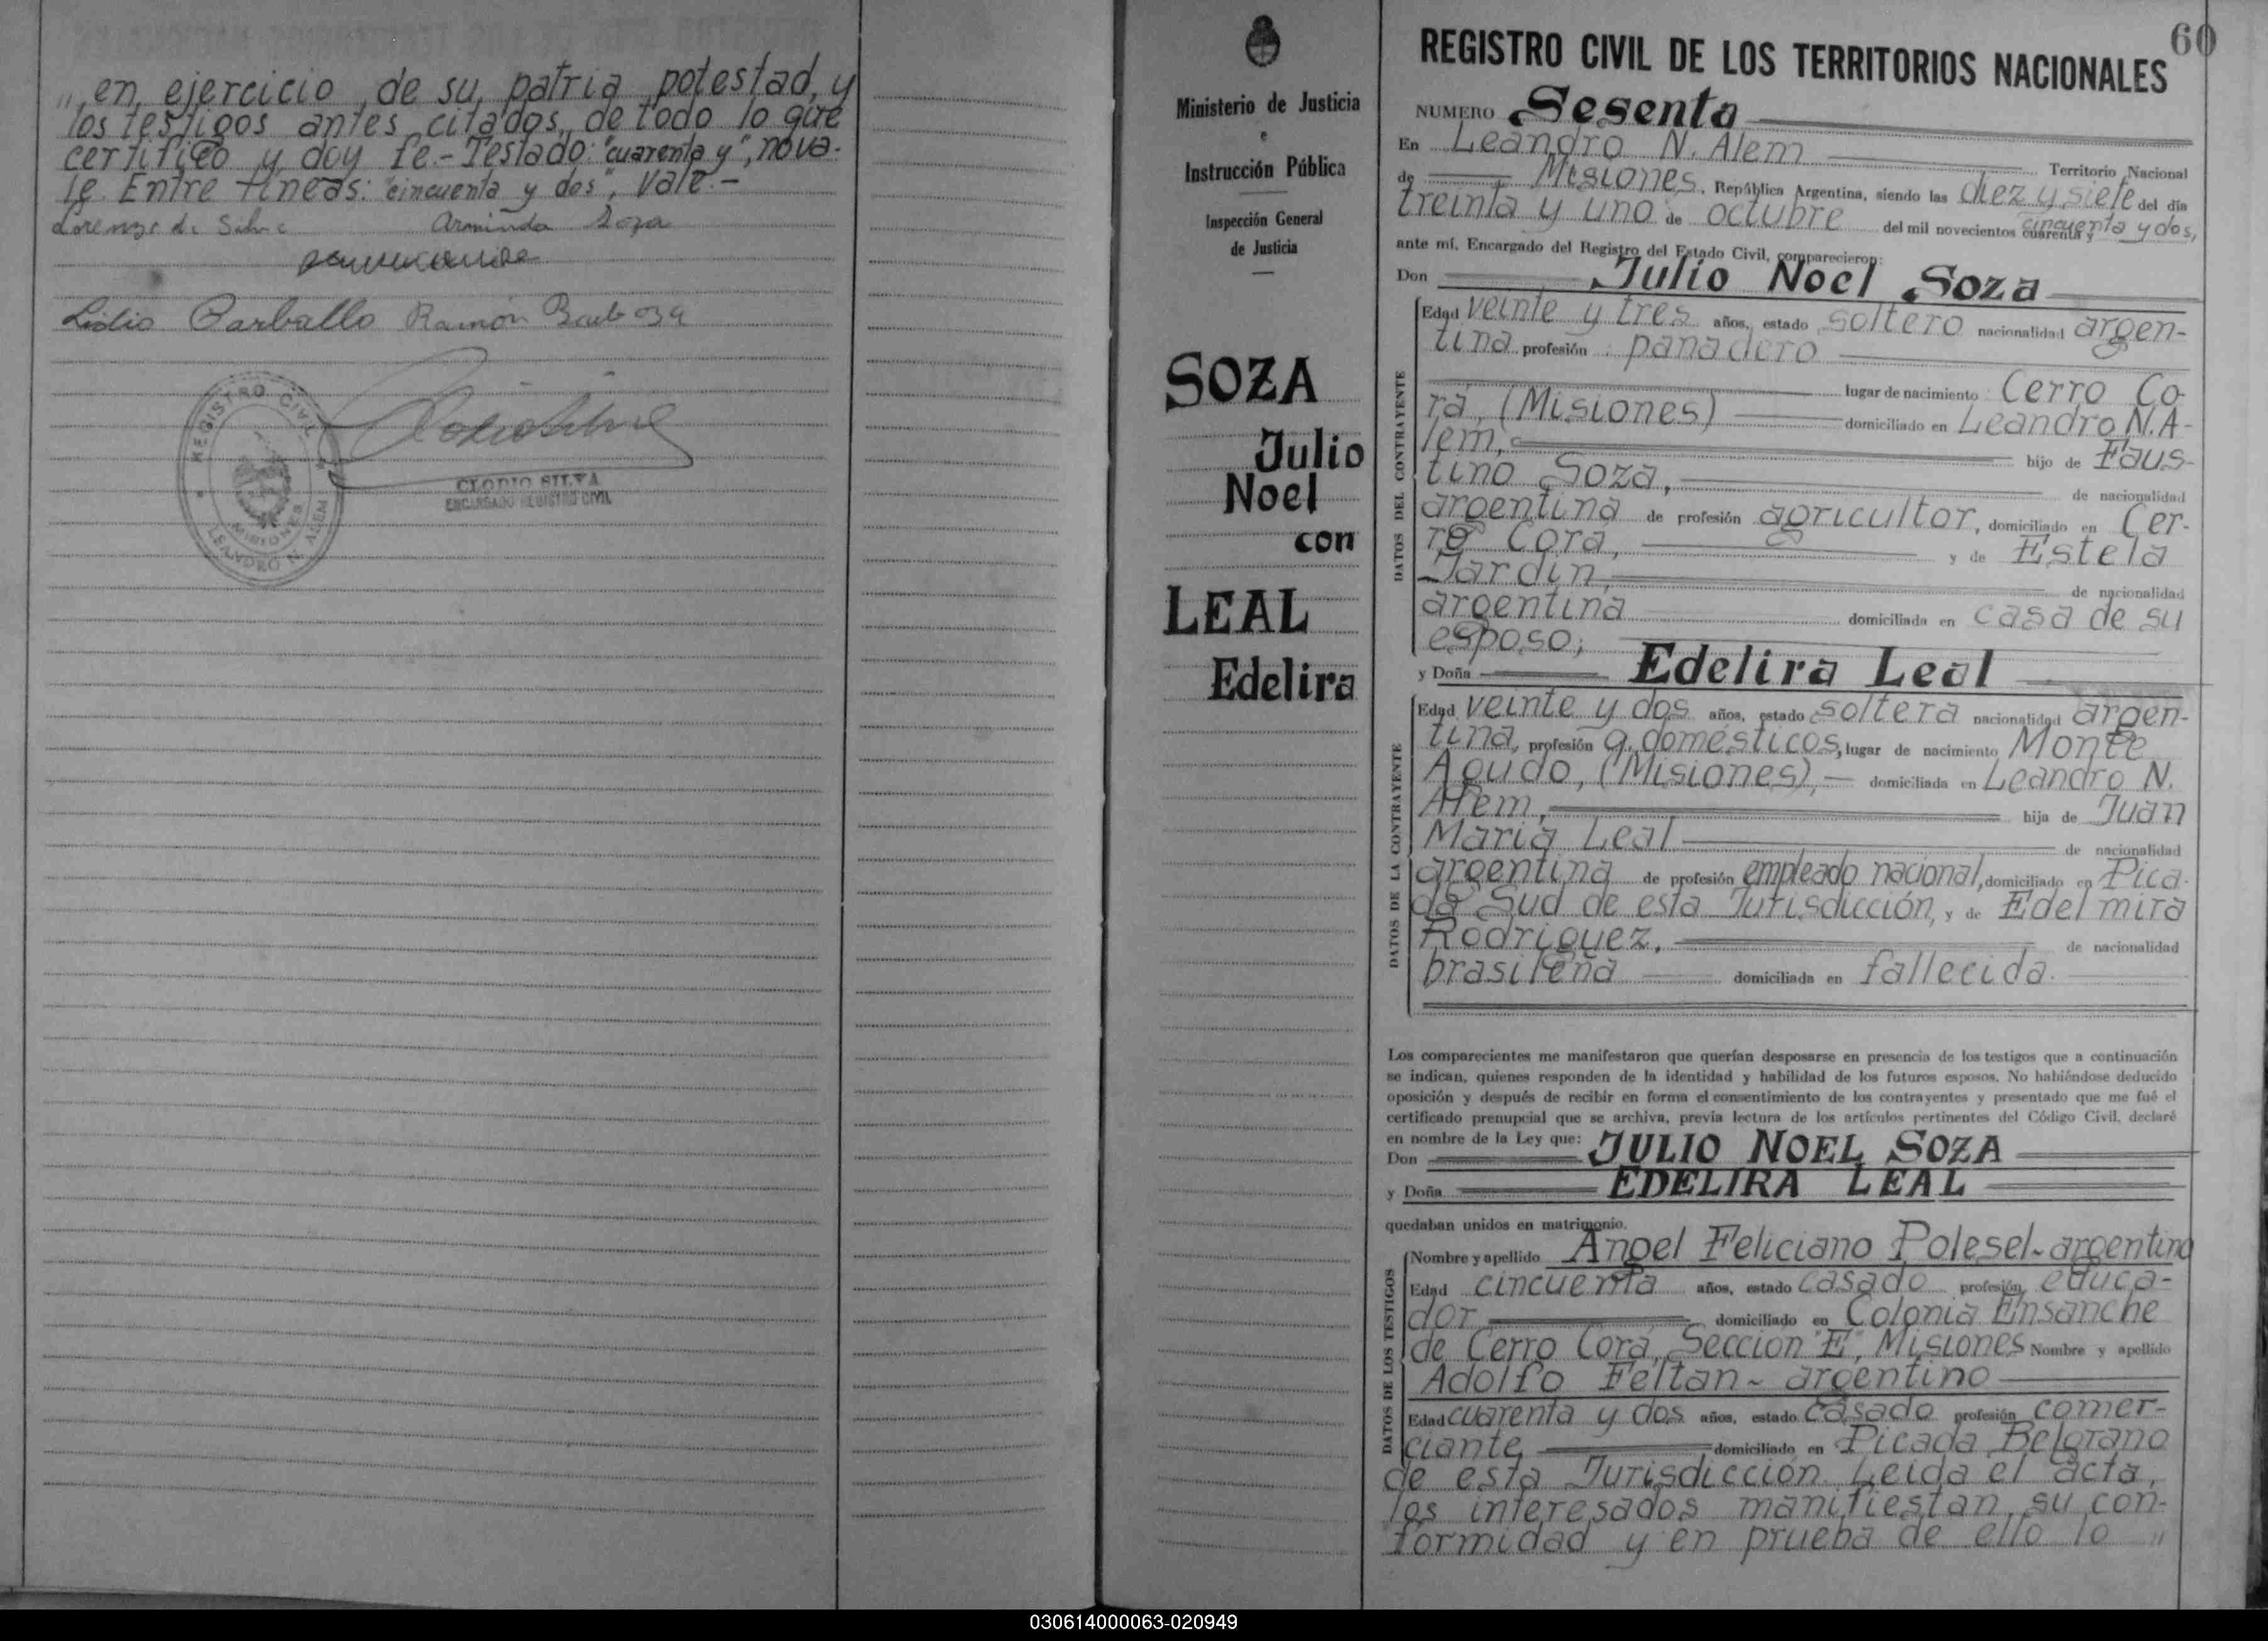 „ en ejercicio de su patria potestad, y
los testigos antes citados, de todo lo que
certifico y doy fe.- Testado: "cuarenta y", nova-
le. Entre líneas: "cincuenta y dos", Vale.-
Arminda Soza
Lidio Carballo Ramón Barboza
REGISTRO CIVIL
LEANDRO N. ALEM
MISIONES
CLODIO SILVA
ENCARGADO REGISTRO CIVIL
Ministerio de Justicia
e
Instrucción Pública
Inspección General
de Justicia
SOZA
Julio
Noel
con
LEAL
Edelira
60
REGISTRO CIVIL DE LOS TERRITORIOS NACIONALES
NUMERO Sesenta
En Leandro N. Alem Territorio Nacional
de Misiones, República Argentina, siendo las diez y siete del día
treinta y uno de octubre del mil novecientos cuarenta y cincuenta y dos,
ante mí, Encargado del Registro del Estado Civil, comparecieron:
Don Julio Noel Soza
DATOS DEL CONTRAYENTE
Edad veinte y tres años, estado soltero nacionalidad argen-
tina profesión panadero
lugar de nacimiento Cerro Co-
rá, (Misiones) domiciliado en Leandro N. A-
lem, hijo de Faus-
tino Soza, de nacionalidad
argentina de profesión agricultor, domiciliado en Cer-
ro Corá, y de Estela
Jardin, de nacionalidad
argentina domiciliada en casa de su
esposo;
y Doña Edelira Leal
DATOS DE LA CONTRAYENTE
Edad veinte y dos años, estado soltera nacionalidad argen-
tina, profesión q. domésticos, lugar de nacimiento Monte
Agudo, (Misiones), domiciliada en Leandro N.
Alem, hija de Juan
María Leal de nacionalidad
argentina de profesión empleado nacional, domiciliado en Pica-
da Sud de esta Jurisdicción, y de Edelmira
Rodriguez, de nacionalidad
brasileña domiciliada en fallecida.
Los comparecientes me manifestaron que querían desposarse en presencia de los testigos que a continuación
se indican, quienes responden de la identidad y habilidad de los futuros esposos. No habiéndose deducido
oposición y después de recibir en forma el consentimiento de los contrayentes y presentado que me fué el
certificado prenupcial que se archiva, previa lectura de los artículos pertinentes del Código Civil, declaré
en nombre de la Ley que:
Don JULIO NOEL SOZA
y Doña EDELIRA LEAL
quedaban unidos en matrimonio.
DATOS DE LOS TESTIGOS
Nombre y apellido Angel Feliciano Polesel - argentino
Edad cincuenta años, estado casado profesión educa-
dor domiciliado en Colonia Ensanche
de Cerro Corá, Sección "E", Misiones Nombre y apellido
Adolfo Feltan - argentino
Edad cuarenta y dos años, estado casado profesión comer-
ciante domiciliado en Picada Belgrano
de esta Jurisdicción. Leída el acta,
los interesados manifiestan su con-
formidad y en prueba de ello lo „
030614000063-020949